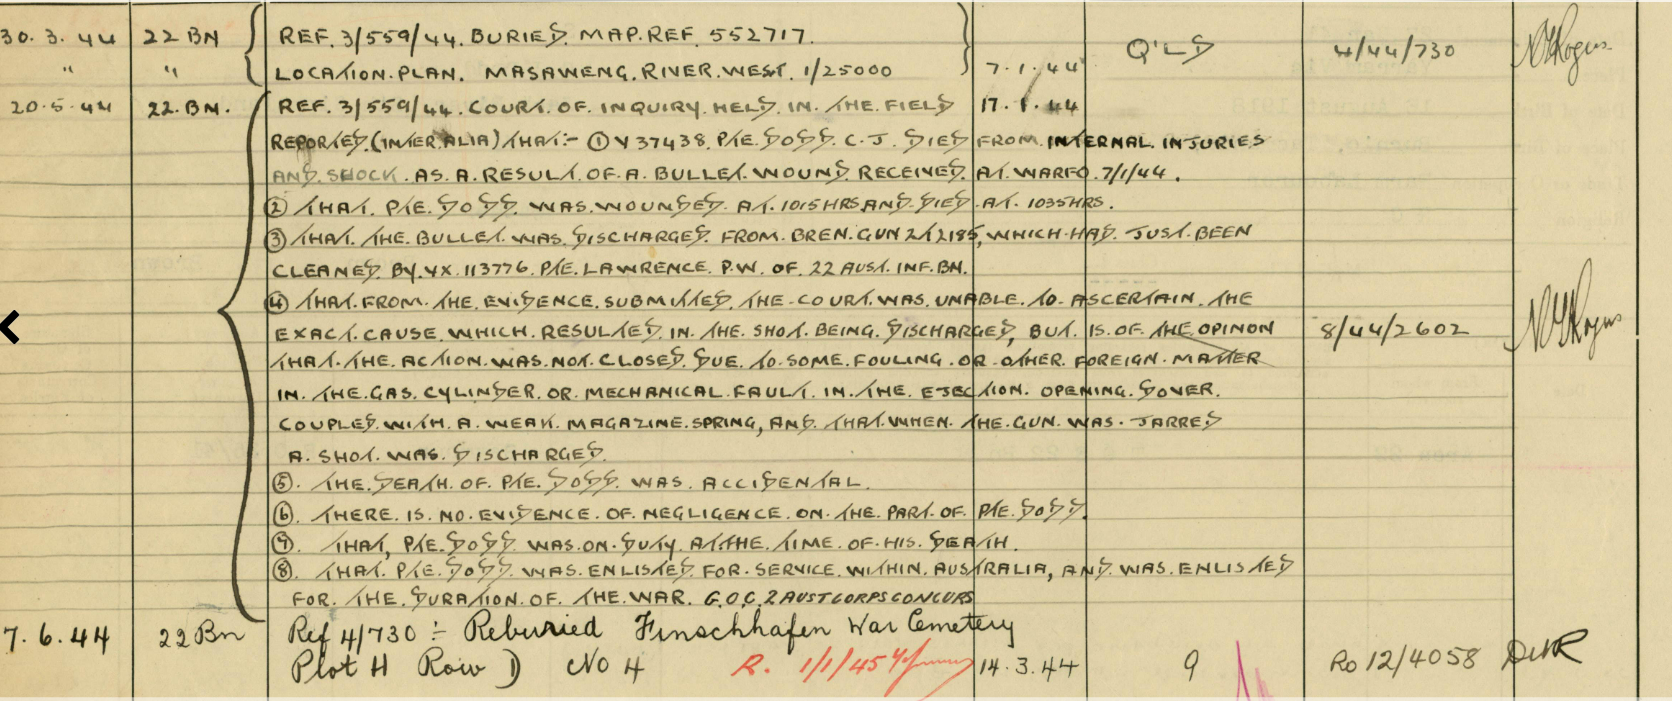 30.3.44 22 BN REF. 3/559/44. BURIED. MAP. REF. 552717. Q'LD 4/44/730
" " LOCATION. PLAN. MASAWENG. RIVER. WEST. 1/25000 7.1.44
20.5.44 22.BN. REF. 3/559/44. COURT. OF. INQUIRY. HELD. IN. THE. FIELD 17.1.44
REPORTED. (INTER. ALIA) THAT:- ① V37438. PTE. DODD. C.J. DIED FROM. INTERNAL. INJURIES
AND. SHOCK. AS. A. RESULT. OF. A. BULLET. WOUND. RECEIVED. AT. WARFO. 7/1/44.
② THAT. PTE. DODD. WAS. WOUNDED. AT. 1015 HRS. AND. DIED. AT. 1035 HRS.
③ THAT. THE. BULLET. WAS. DISCHARGED. FROM. BREN. GUN 2T2185, WHICH. HAD. JUST. BEEN
CLEANED. BY. VX. 113776. PTE. LAWRENCE. P.W. OF. 22 AUST. INF. BN.
④ THAT. FROM. THE. EVIDENCE. SUBMITTED. THE. COURT. WAS. UNABLE. TO. ASCERTAIN. THE
EXACT. CAUSE. WHICH. RESULTED. IN. THE. SHOT. BEING. DISCHARGED, BUT. IS. OF. THE. OPINON 8/44/2602
THAT. THE. ACTION. WAS. NOT. CLOSED. DUE. TO. SOME. FOULING. OR. OTHER. FOREIGN. MATTER
IN. THE. GAS. CYLINDER. OR. MECHANICAL. FAULT. IN. THE. EJECTION. OPENING. DOVER.
COUPLED. WITH. A. WEAK. MAGAZINE. SPRING, AND. THAT. WHEN. THE. GUN. WAS. JARRED
A. SHOT. WAS. DISCHARGED.
⑤. THE. DEATH. OF. PTE. DODD. WAS. ACCIDENTAL.
⑥. THERE. IS. NO. EVIDENCE. OF. NEGLIGENCE. ON. THE. PART. OF. PTE. DODD.
⑦. THAT, PTE. DODD. WAS. ON. DUTY. AT. THE. TIME. OF. HIS. DEATH.
⑧. THAT. PTE. DODD. WAS. ENLISTED. FOR. SERVICE. WITHIN. AUSTRALIA, AND. WAS. ENLISTED
FOR. THE. DURATION. OF. THE. WAR. G.O.C. 2 AUST CORPS CONCURS
7.6.44 22 Bn Ref 4/730 :- Reburied Finschhafen War Cemetery
Plot H Row D No 4 R. 1/1/45 14.3.44 9 Ro 12/4058